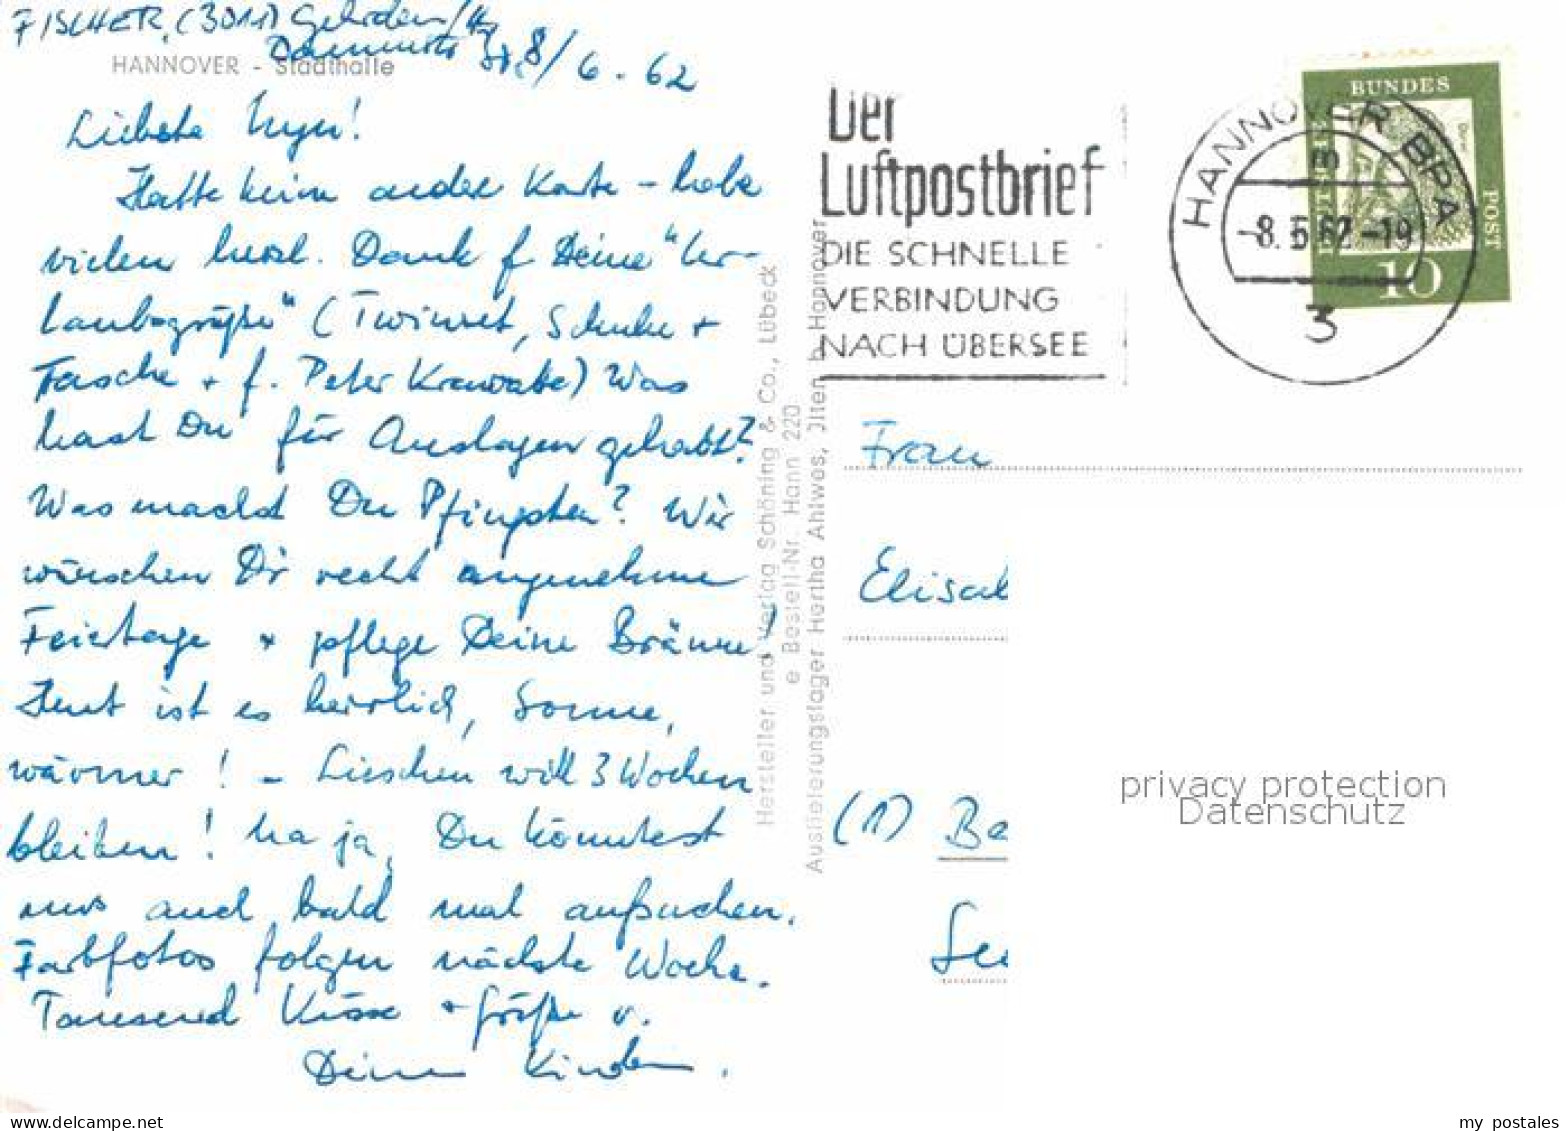 FISCHER, (3011) Gehrden/
HANNOVER - Stadthalle
8/6.62
Liebste
Hatte keine andre Karte - habe
vielen herzl. Dank f Deine "Ur-
laubsgrüße" (Twinset, Schuhe +
Tasche + f. Peter Krawatte) Was
hast Du für Auslagen gehabt?
Was machst Du Pfingsten? Wir
wünschen Dir recht angenehme
Feiertage + pflege Deine Bräune!
Heut ist es herrlich, Sonne,
wärmer! - Lieschen will 3 Wochen
bleiben! Na ja, Du könntest
uns auch bald mal aufsuchen.
Farbfotos folgen nächste Woche.
Tausend Küsse + Grüße v.
Deinen Kindern.
Hersteller und Verlag Schöning & Co., Lübeck
e Bestell-Nr. Hann 220
Auslieferungslager Hertha Ahlwes, Ilten b. Hannover
Der
Luftpostbrief
DIE SCHNELLE
VERBINDUNG
NACH ÜBERSEE
HANNOVER BPA
m
-8.6.62-19
3
BUNDES
POST
10
Frau
Elisab
(1) Be
privacy protection
Datenschutz
my postales